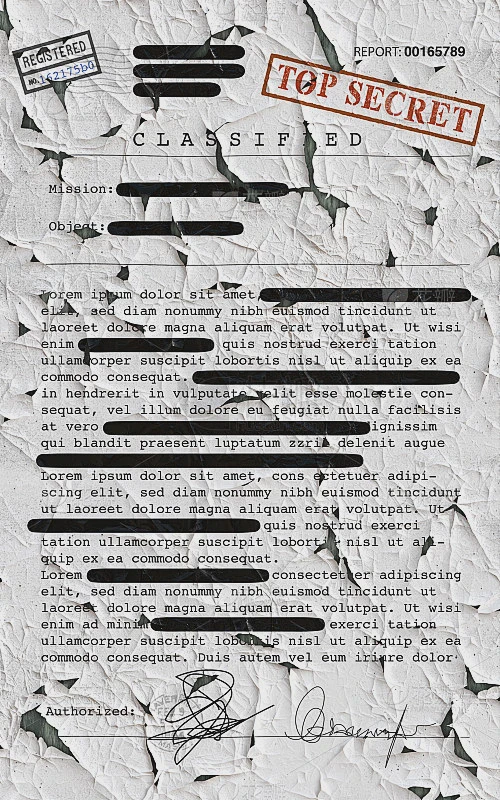 REGISTERED
NO. 162175b0
REPORT: 00165789
TOP SECRET
CLASSIFIED
Mission:
Object:
Lorem ipsum dolor sit amet,
elit, sed diam nonummy nibh euismod tincidunt ut
laoreet dolore magna aliquam erat volutpat. Ut wisi
enim quis nostrud exerci tation
ullamcorper suscipit lobortis nisl ut aliquip ex ea
commodo consequat.
in hendrerit in vulputate velit esse molestie con-
sequat, vel illum dolore eu feugiat nulla facilisis
at vero ignissim
qui blandit praesent luptatum zzril delenit augue
Lorem ipsum dolor sit amet, cons ectetuer adipi-
scing elit, sed diam nonummy nibh euismod tincidunt
ut laoreet dolore magna aliquam erat volutpat. Ut
quis nostrud exerci
tation ullamcorper suscipit lobortis nisl ut ali-
quip ex ea commodo consequat.
Lorem consectetuer adipiscing
elit, sed diam nonummy nibh euismod tincidunt ut
laoreet dolore magna aliquam erat volutpat. Ut wisi
enim ad minim exerci tation
ullamcorper suscipit lobortis nisl ut aliquip ex ea
commodo consequat. Duis autem vel eum iriure dolor
Authorized: